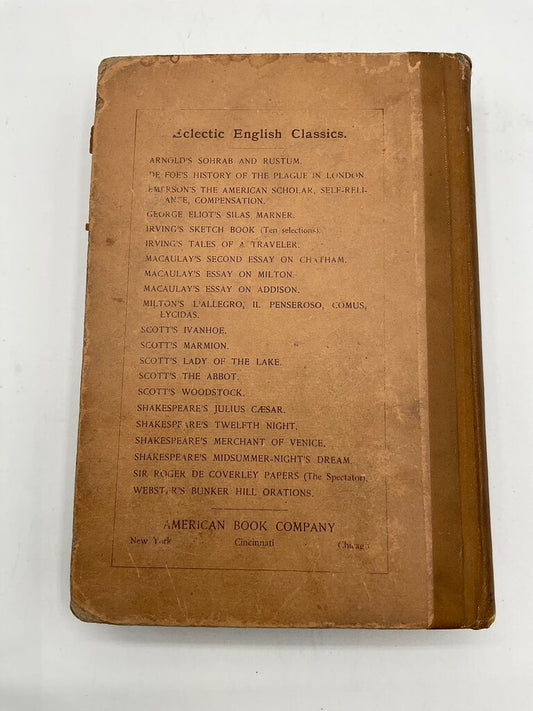 Eclectic English Classics.
ARNOLD'S SOHRAB AND RUSTUM.
DE FOE'S HISTORY OF THE PLAGUE IN LONDON.
EMERSON'S THE AMERICAN SCHOLAR, SELF-RELI-
ANCE, COMPENSATION.
GEORGE ELIOT'S SILAS MARNER.
IRVING'S SKETCH BOOK (Ten selections).
IRVING'S TALES OF A TRAVELER.
MACAULAY'S SECOND ESSAY ON CHATHAM.
MACAULAY'S ESSAY ON MILTON.
MACAULAY'S ESSAY ON ADDISON.
MILTON'S L'ALLEGRO, IL PENSEROSO, COMUS,
LYCIDAS.
SCOTT'S IVANHOE.
SCOTT'S MARMION.
SCOTT'S LADY OF THE LAKE.
SCOTT'S THE ABBOT.
SCOTT'S WOODSTOCK.
SHAKESPEARE'S JULIUS CÆSAR.
SHAKESPEARE'S TWELFTH NIGHT.
SHAKESPEARE'S MERCHANT OF VENICE.
SHAKESPEARE'S MIDSUMMER-NIGHT'S DREAM.
SIR ROGER DE COVERLEY PAPERS (The Spectator).
WEBSTER'S BUNKER HILL ORATIONS.
AMERICAN BOOK COMPANY
New York Cincinnati Chicago